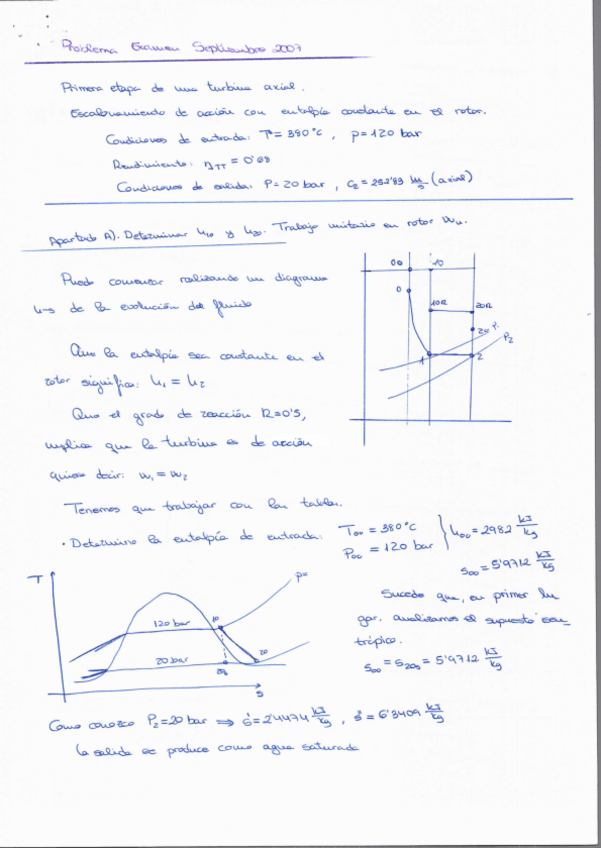 Problema Examen Septiembre 2007
Primera etapa de una turbina axial.
Escalonamiento de acción con entalpía constante en el rotor.
Condiciones de entrada: T=380°C, p=120 bar
Rendimiento: ηTT = 0'88
Condiciones de salida: P=20 bar, C2=252'83 m/s (axial)
Apartado A). Determinar h10 y h20. Trabajo unitario en rotor Wu.
Puedo comenzar realizando un diagrama
h-s de la evolución del fluido
00 10
0
10R 20R
20
P1
P2
1 2
Que la entalpía sea constante en el
rotor significa: h1 = h2
Que el grado de reacción R=0'5,
implica que la turbina es de acción
quiere decir: w1 = w2
Tenemos que trabajar con las tablas.
· Determino la entalpía de entrada: T00 = 380°C
P00 = 120 bar
h00 = 2982 kJ/kg
s00 = 5'9712 kJ/kg
T
P=
120 bar
10
20 bar
20
s
Sucede que, en primer lu
gar, analizamos el supuesto isen_
trópico.
s00 = s20s = 5'9712 kJ/kg
Como conozco P2=20 bar ⇒ s'=2'4474 kJ/kg, s''=6'3409 kJ/kg
la salida se produce como agua saturada